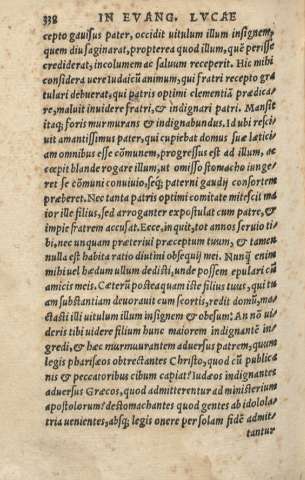 338 IN EVANG. LVCAE
cepto gauisus pater, occidit uitulum illum insignem,
quem diu saginarat, propterea quod illum, quē perisse
crediderat, incolumem ac saluum receperit. Hic mihi
considera uere Iudaicū animum, qui fratri recepto gra
tulari debuerat, qui patris optimi clementiā prædica-
re, maluit inuidere fratri, & indignari patri. Mansit
itaq; foris murmurans & indignabundus. Id ubi resci
uit amantissimus pater, qui cupiebat domus suæ lætici
am omnibus esse cōmunem, progressus est ad illum, ac
cœpit blande rogare illum, ut omisso stomacho iunge-
ret se cōmuni conuiuio, seq; paterni gaudij consortem
præberet. Nec tanta patris optimi comitate mitescit ma
ior ille filius, sed arroganter expostulat cum patre, &
impie fratrem accusat. Ecce, inquit, tot annos seruio ti-
bi, nec unquam præteriui præceptum tuum, & tamen
nulla est habita ratio diutini obsequij mei. Nunq̄ enim
mihi uel hædum ullum dedisti, unde possem epulari cū
amicis meis. Cæterū posteaquam iste filius tuus, qui tu
am substantiam deuorauit cum scortis, redit domū, ma
ctasti illi uitulum illum insignem & obesum: An nō ui-
deris tibi uidere filium hunc maiorem indignantē in-
gredi, & hæc murmurantem aduersus patrem, quum
legis pharisæos obtrectantes Christo, quod cū publica
nis & peccatoribus cibum capiat? Iudæos indignantes
aduersus Græcos, quod admitterentur ad ministerium
apostolorum? destomachantes quod gentes ab idolola-
tria uenientes, absq; legis onere per solam fidē admit-
tantur